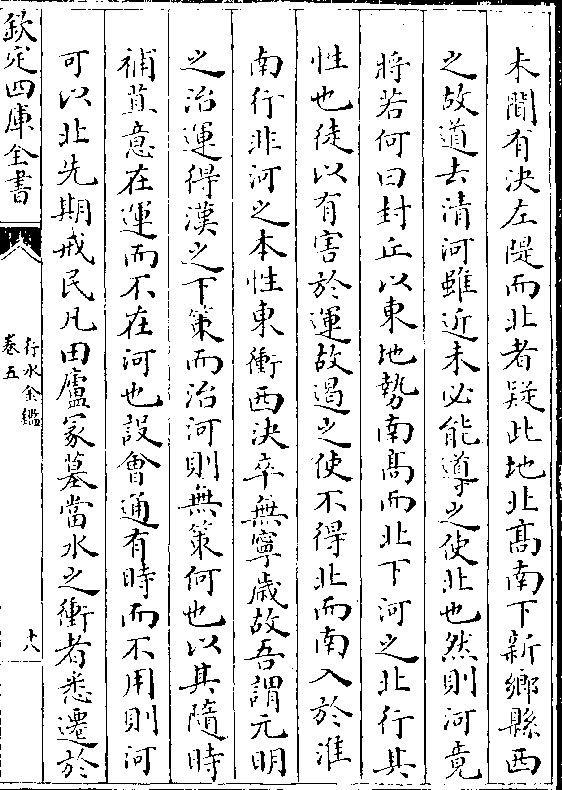 未聞有決左隄而北者疑此地北髙南下新鄉縣西
之故道去清河雖近未必能導之使北也然則河竟
將若何曰封丘以東地勢南髙而北下河之北行其
性也徒以有害於運故遏之使不得北而南入於淮
南行非河之本性東衝西決卒無寧歲故吾謂元明
之治運得漢之下策而治河則無策何也以其隨時
補苴意在運而不在河也設會通有時而不用則河
可以北先期戒民凡田廬冢墓當水之衝者悉遷於
欽定四庫全書
行水金鑑
卷五
十八